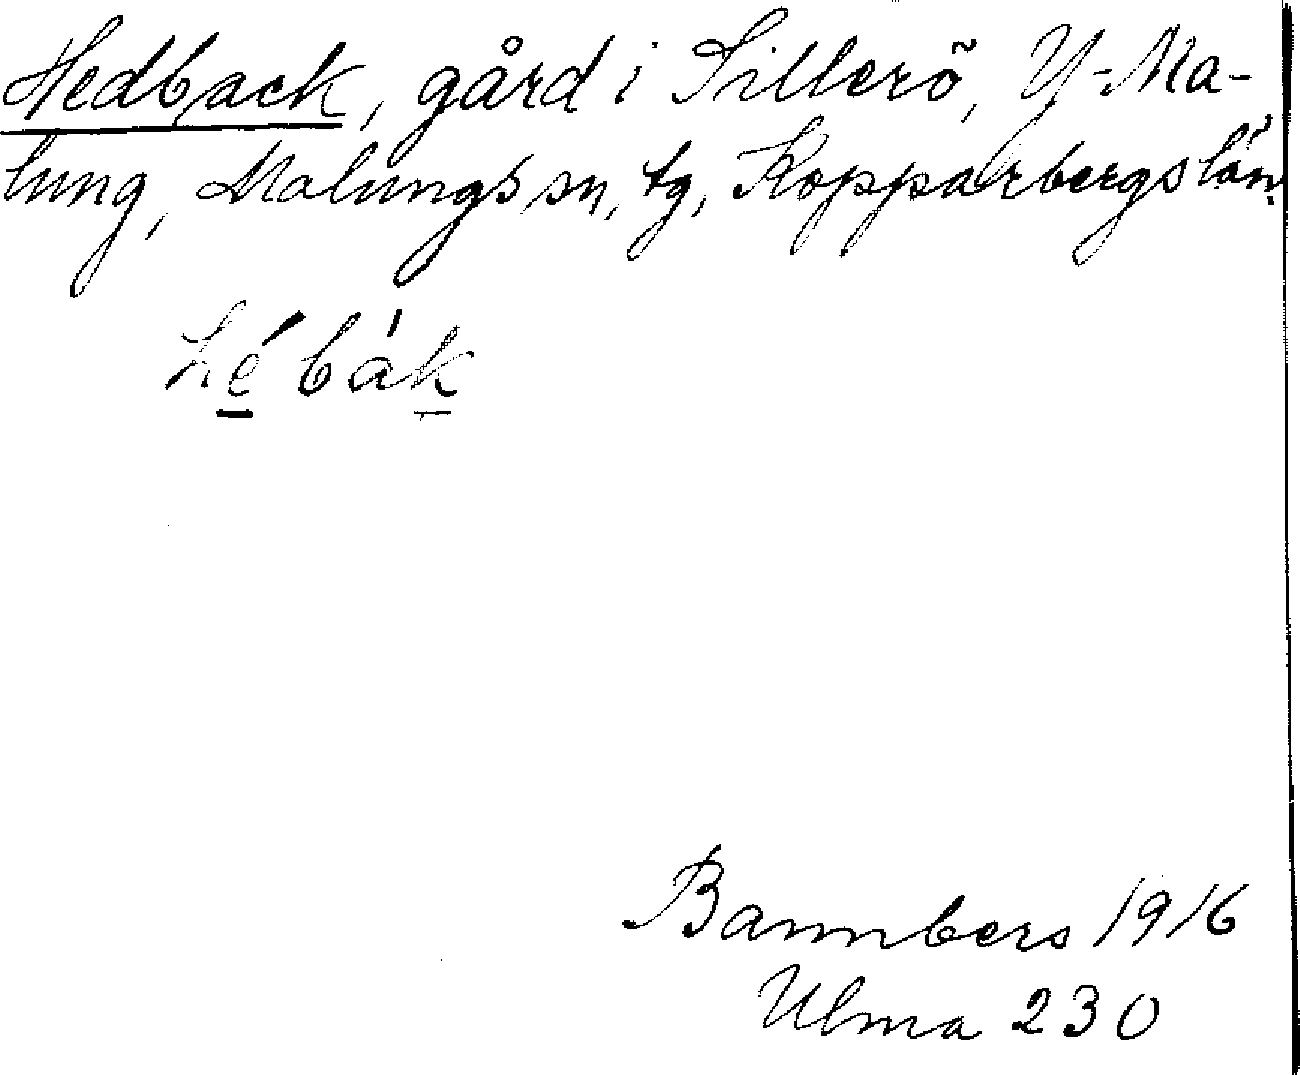 Hedback, gård i Sillerö, Y-Ma-
lung, Malungs sn, tg, Kopparbergs län
hébák
Bannbers 1916
Ulma 230